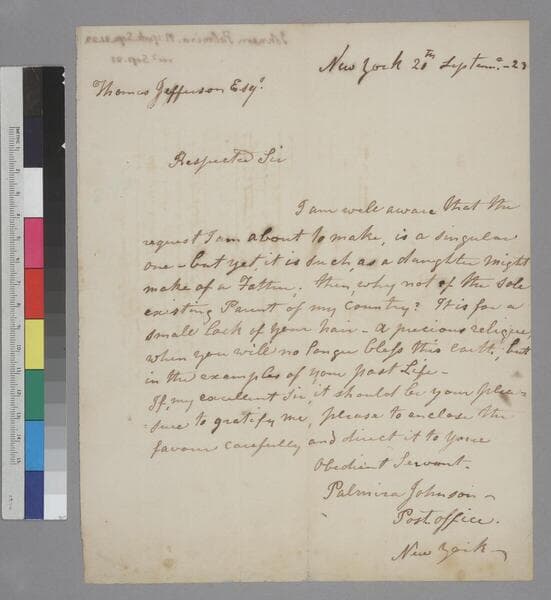 New York 20th Septem.r - 23
Thomas Jefferson Esqr.
Respected Sir
I am well aware that the
request I am about to make, is a singular
one - but yet, it is such, as a daughter might
make of a Father. then, why not of the sole
existing Parent of my Country? It is for a
small lock of your hair - a precious relique,
when you will no longer bless this earth, but
in the examples of your past Life -
If, my excellent Sir, it should be your plea-
-sure to gratify me, please to enclose the
favour carefully and direct it to your
Obedient Servant.
Palmira Johnson -
Post office.
New York -